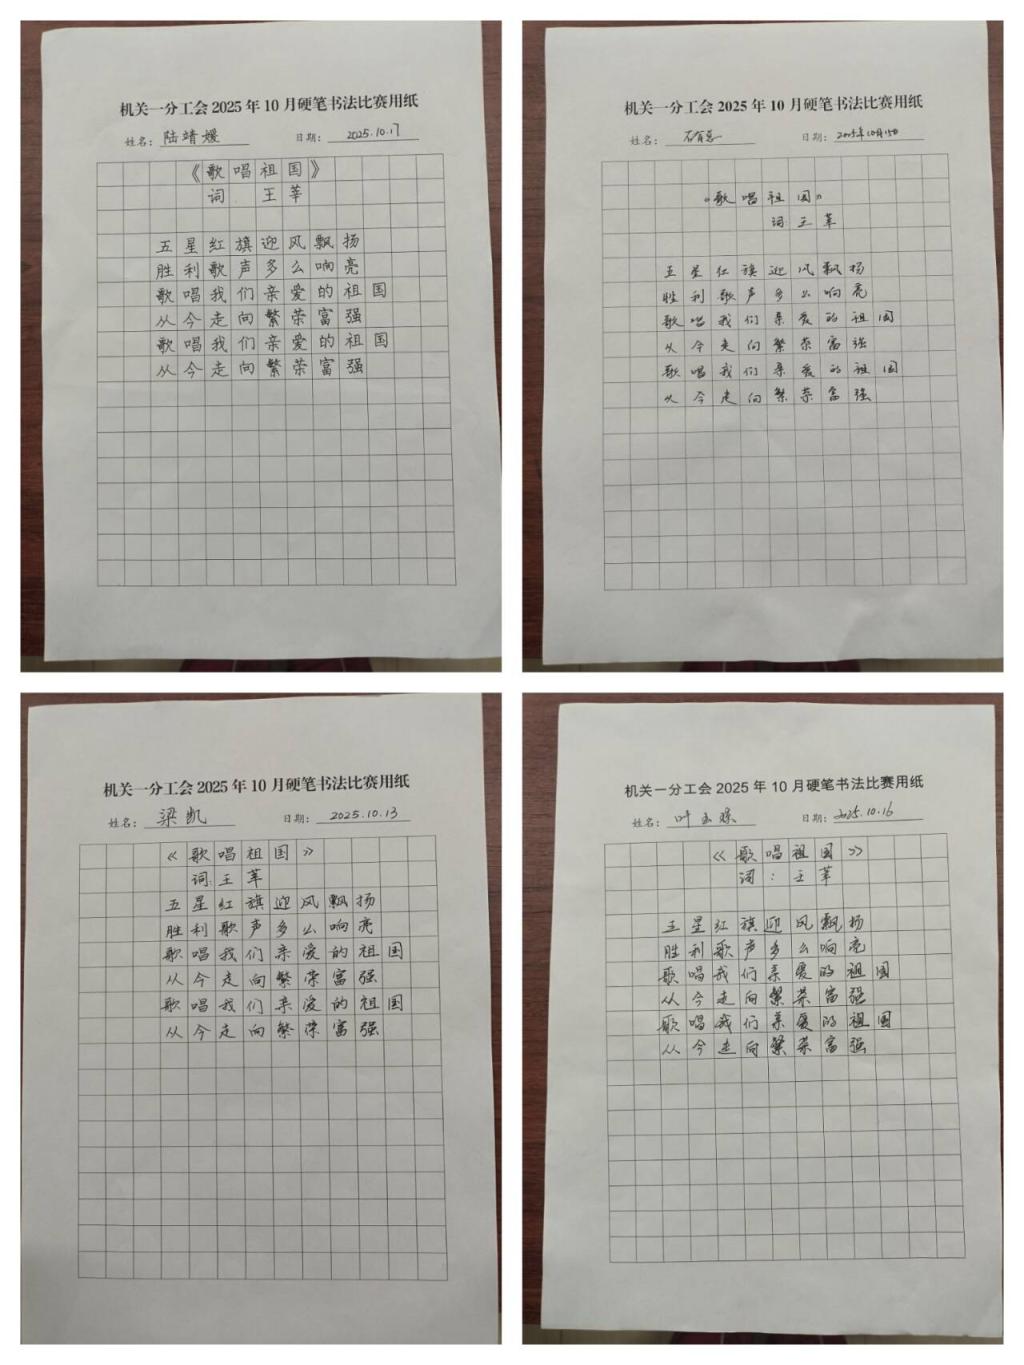 机关一分工会 2025 年 10 月硬笔书法比赛用纸
姓名：陆靖媛 日期：2025.10.17
《歌唱祖国》
词 王莘
五星红旗迎风飘扬
胜利歌声多么响亮
歌唱我们亲爱的祖国
从今走向繁荣富强
歌唱我们亲爱的祖国
从今走向繁荣富强
机关一分工会 2025 年 10 月硬笔书法比赛用纸
姓名： 日期：2025年10月15日
《歌唱祖国》
词 王莘
五星红旗迎风飘扬
胜利歌声多么响亮
歌唱我们亲爱的祖国
从今走向繁荣富强
歌唱我们亲爱的祖国
从今走向繁荣富强
机关一分工会 2025 年 10 月硬笔书法比赛用纸
姓名：梁凯 日期：2025.10.13
《歌唱祖国》
词：王莘
五星红旗迎风飘扬
胜利歌声多么响亮
歌唱我们亲爱的祖国
从今走向繁荣富强
歌唱我们亲爱的祖国
从今走向繁荣富强
机关一分工会 2025 年 10 月硬笔书法比赛用纸
姓名：叶 日期：2025.10.16
《歌唱祖国》
词：王莘
五星红旗迎风飘扬
胜利歌声多么响亮
歌唱我们亲爱的祖国
从今走向繁荣富强
歌唱我们亲爱的祖国
从今走向繁荣富强